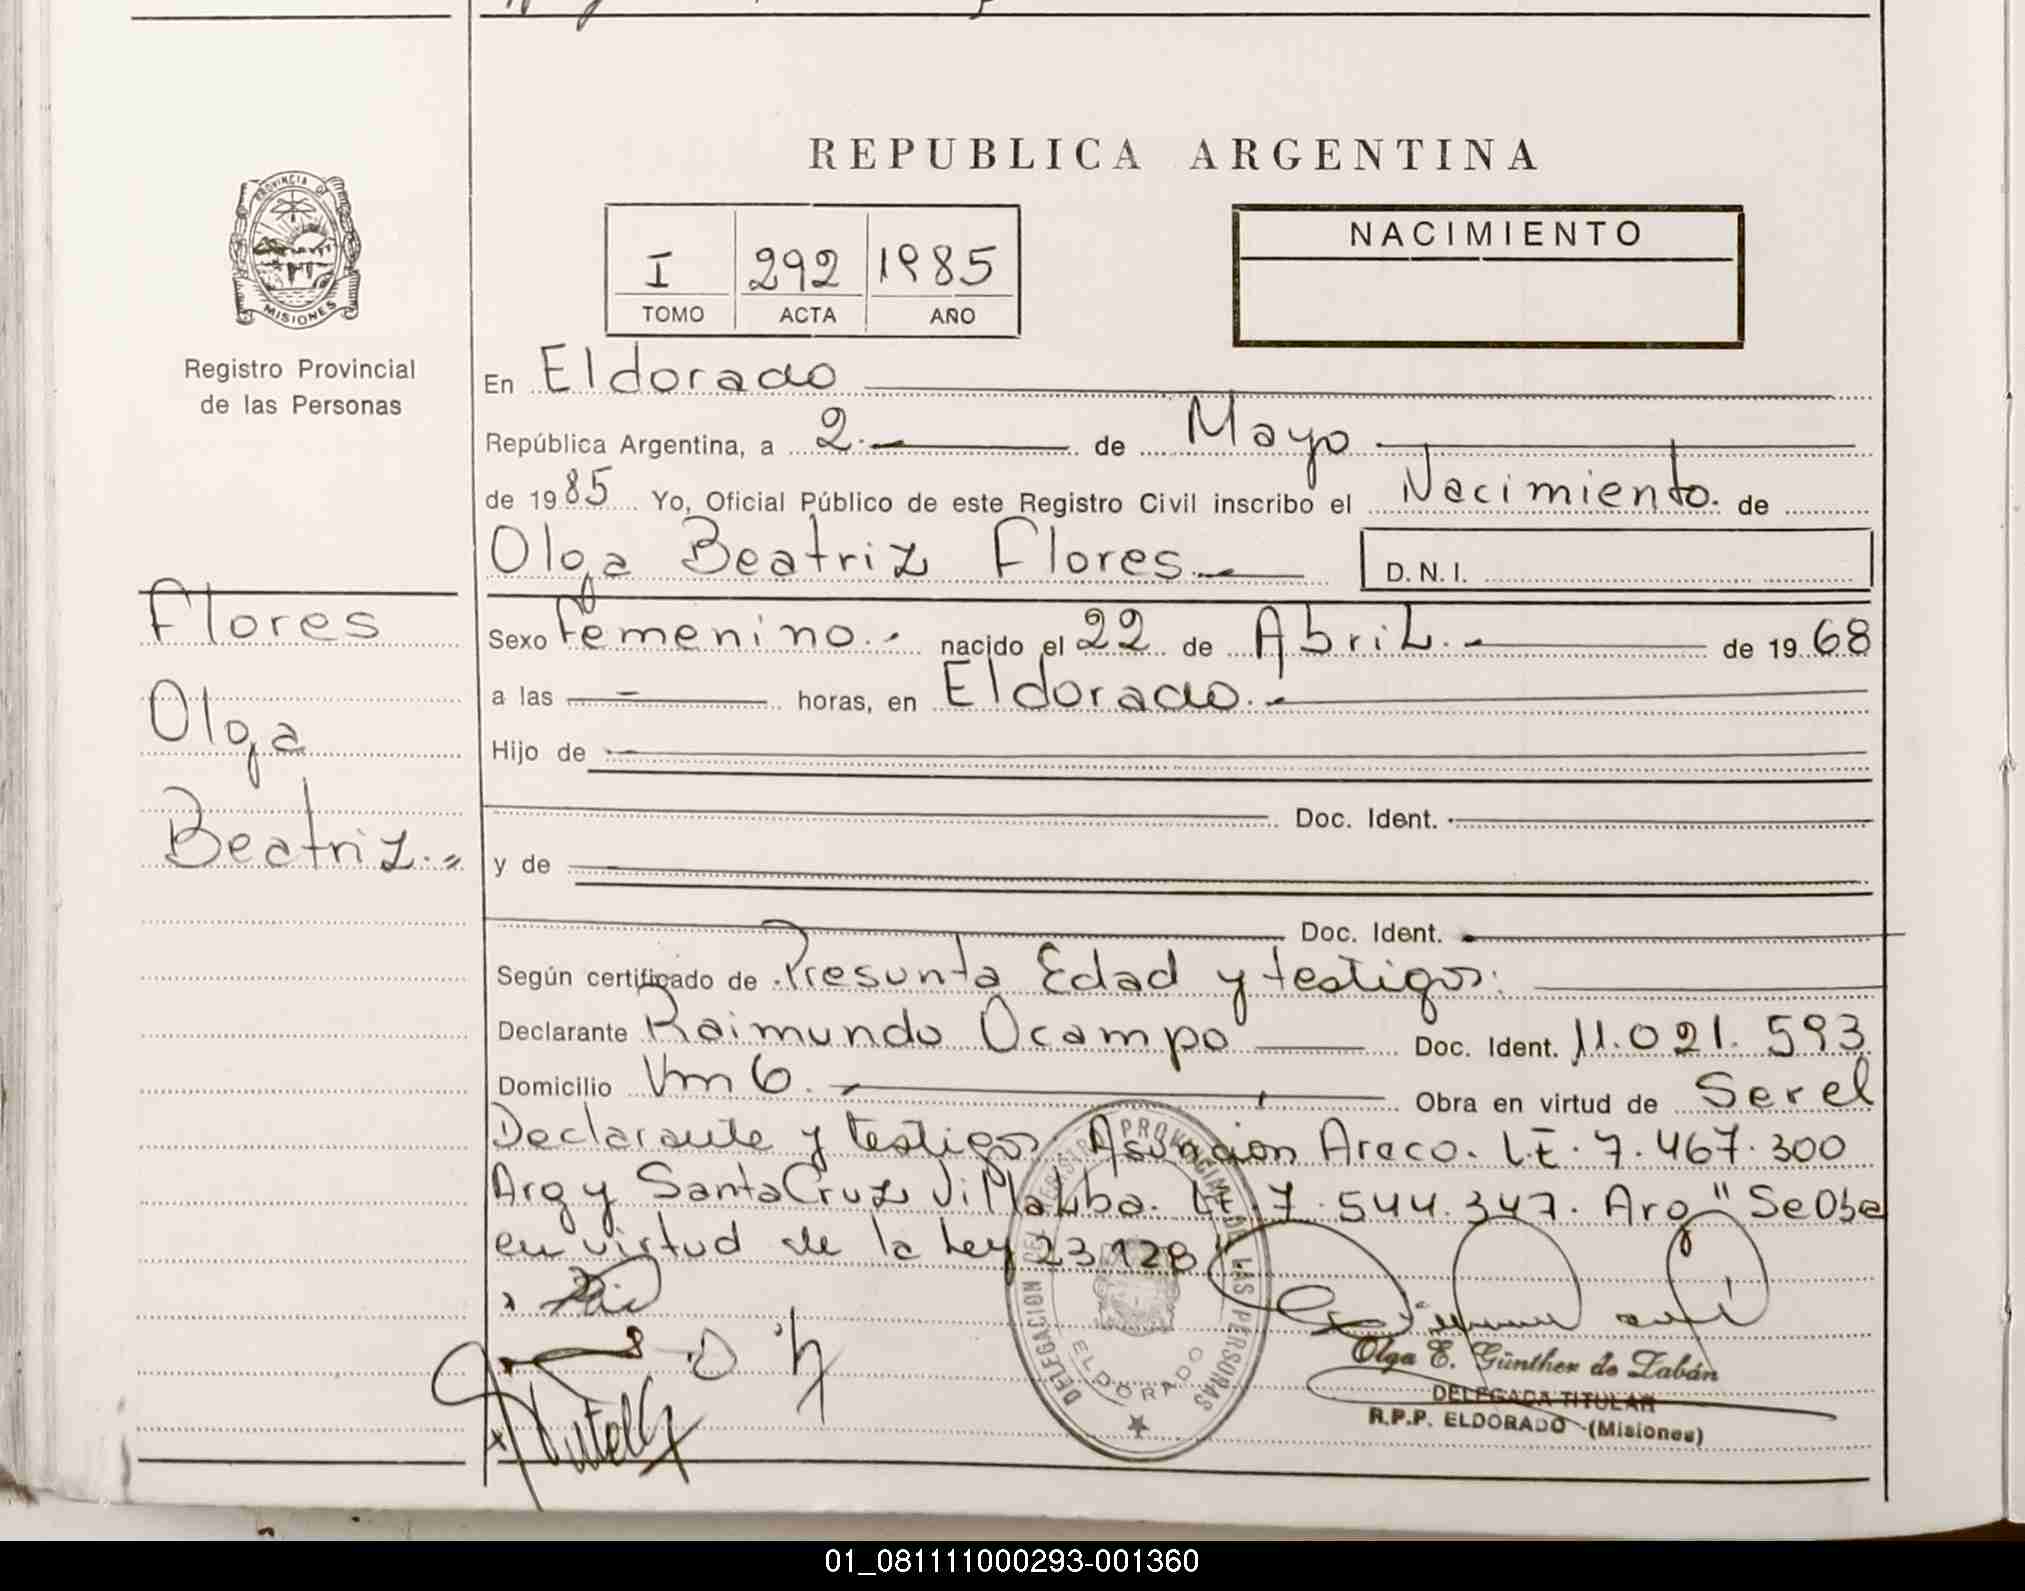 REPUBLICA ARGENTINA
PROVINCIA DE
MISIONES
Registro Provincial
de las Personas
I 292 1985
TOMO ACTA AÑO
NACIMIENTO
En Eldorado
República Argentina, a 2.- de Mayo
de 1985 Yo, Oficial Público de este Registro Civil inscribo el Nacimiento. de
Olga Beatriz Flores.-
D.N.I.
Flores
Olga
Beatriz.=
Sexo Femenino.- nacido el 22 de Abril.- de 1968
a las - horas, en Eldorado.-
Hijo de
Doc. Ident.
y de
Doc. Ident.
Según certificado de Presunta Edad y testigos.
Declarante Raimundo Ocampo Doc. Ident. 11.021.593
Domicilio Km 6.- Obra en virtud de Ser el
Declarante y testigos. Asuncion Areco. L.E. 7.467.300
Arg y Santa Cruz Villalba. L.E. 7.544.347. Arg "Se Obra
en virtud de la Ley 23.128"
DELEGACION DEL REGISTRO PROVINCIAL DE LAS PERSONAS
ELDORADO
Olga E. Günther de Zabán
DELEGADA TITULAR
R.P.P. ELDORADO - (Misiones)
01_081111000293-001360